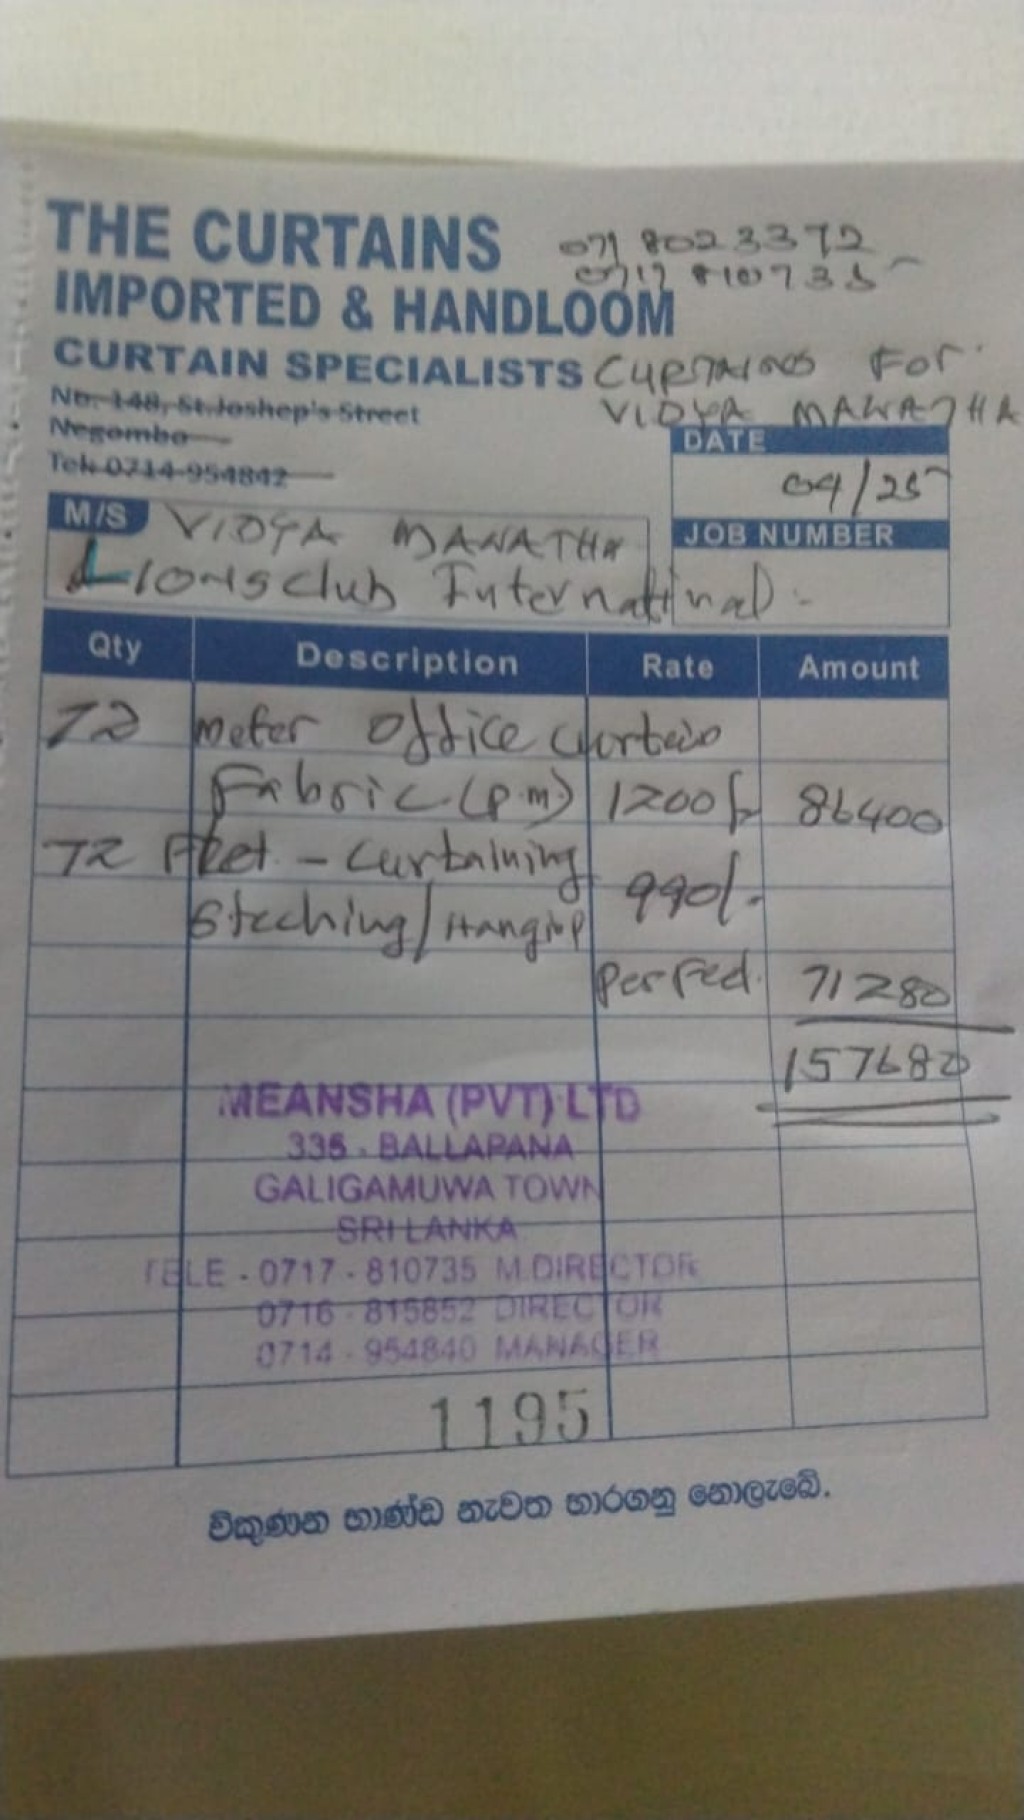 THE CURTAINS
071 8023372
0717 810735
IMPORTED & HANDLOOM
CURTAIN SPECIALISTS
CURTAINS FOR
VIDYA MAWATHA
No. 148, St.Joshep's Street
Negombo
Tel: 0714-954842
DATE
04/25
M/S VIDYA MAWATHA
JOB NUMBER
Lions club International -
Qty Description Rate Amount
72 meter office curtain
Fabric (p.m) 1200/- 86400
72 Feet - Curtaining
990/-
Steching/Hanging
Per Feet. 71280
157680
MEANSHA (PVT) LTD
335 - BALLAPANA
GALIGAMUWA TOWN
SRI LANKA
TELE - 0717 - 810735 M.DIRECTOR
0716 - 815852 DIRECTOR
0714 - 954840 MANAGER
1195
විකුණන භාණ්ඩ නැවත භාරගනු නොලැබේ.